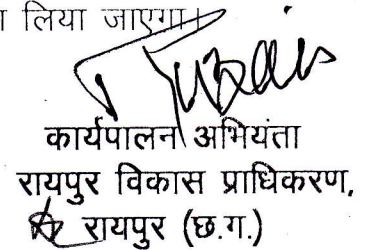 लिया जाएगा।
कार्यपालन अभियंता
रायपुर विकास प्राधिकरण,
रायपुर (छ.ग.)